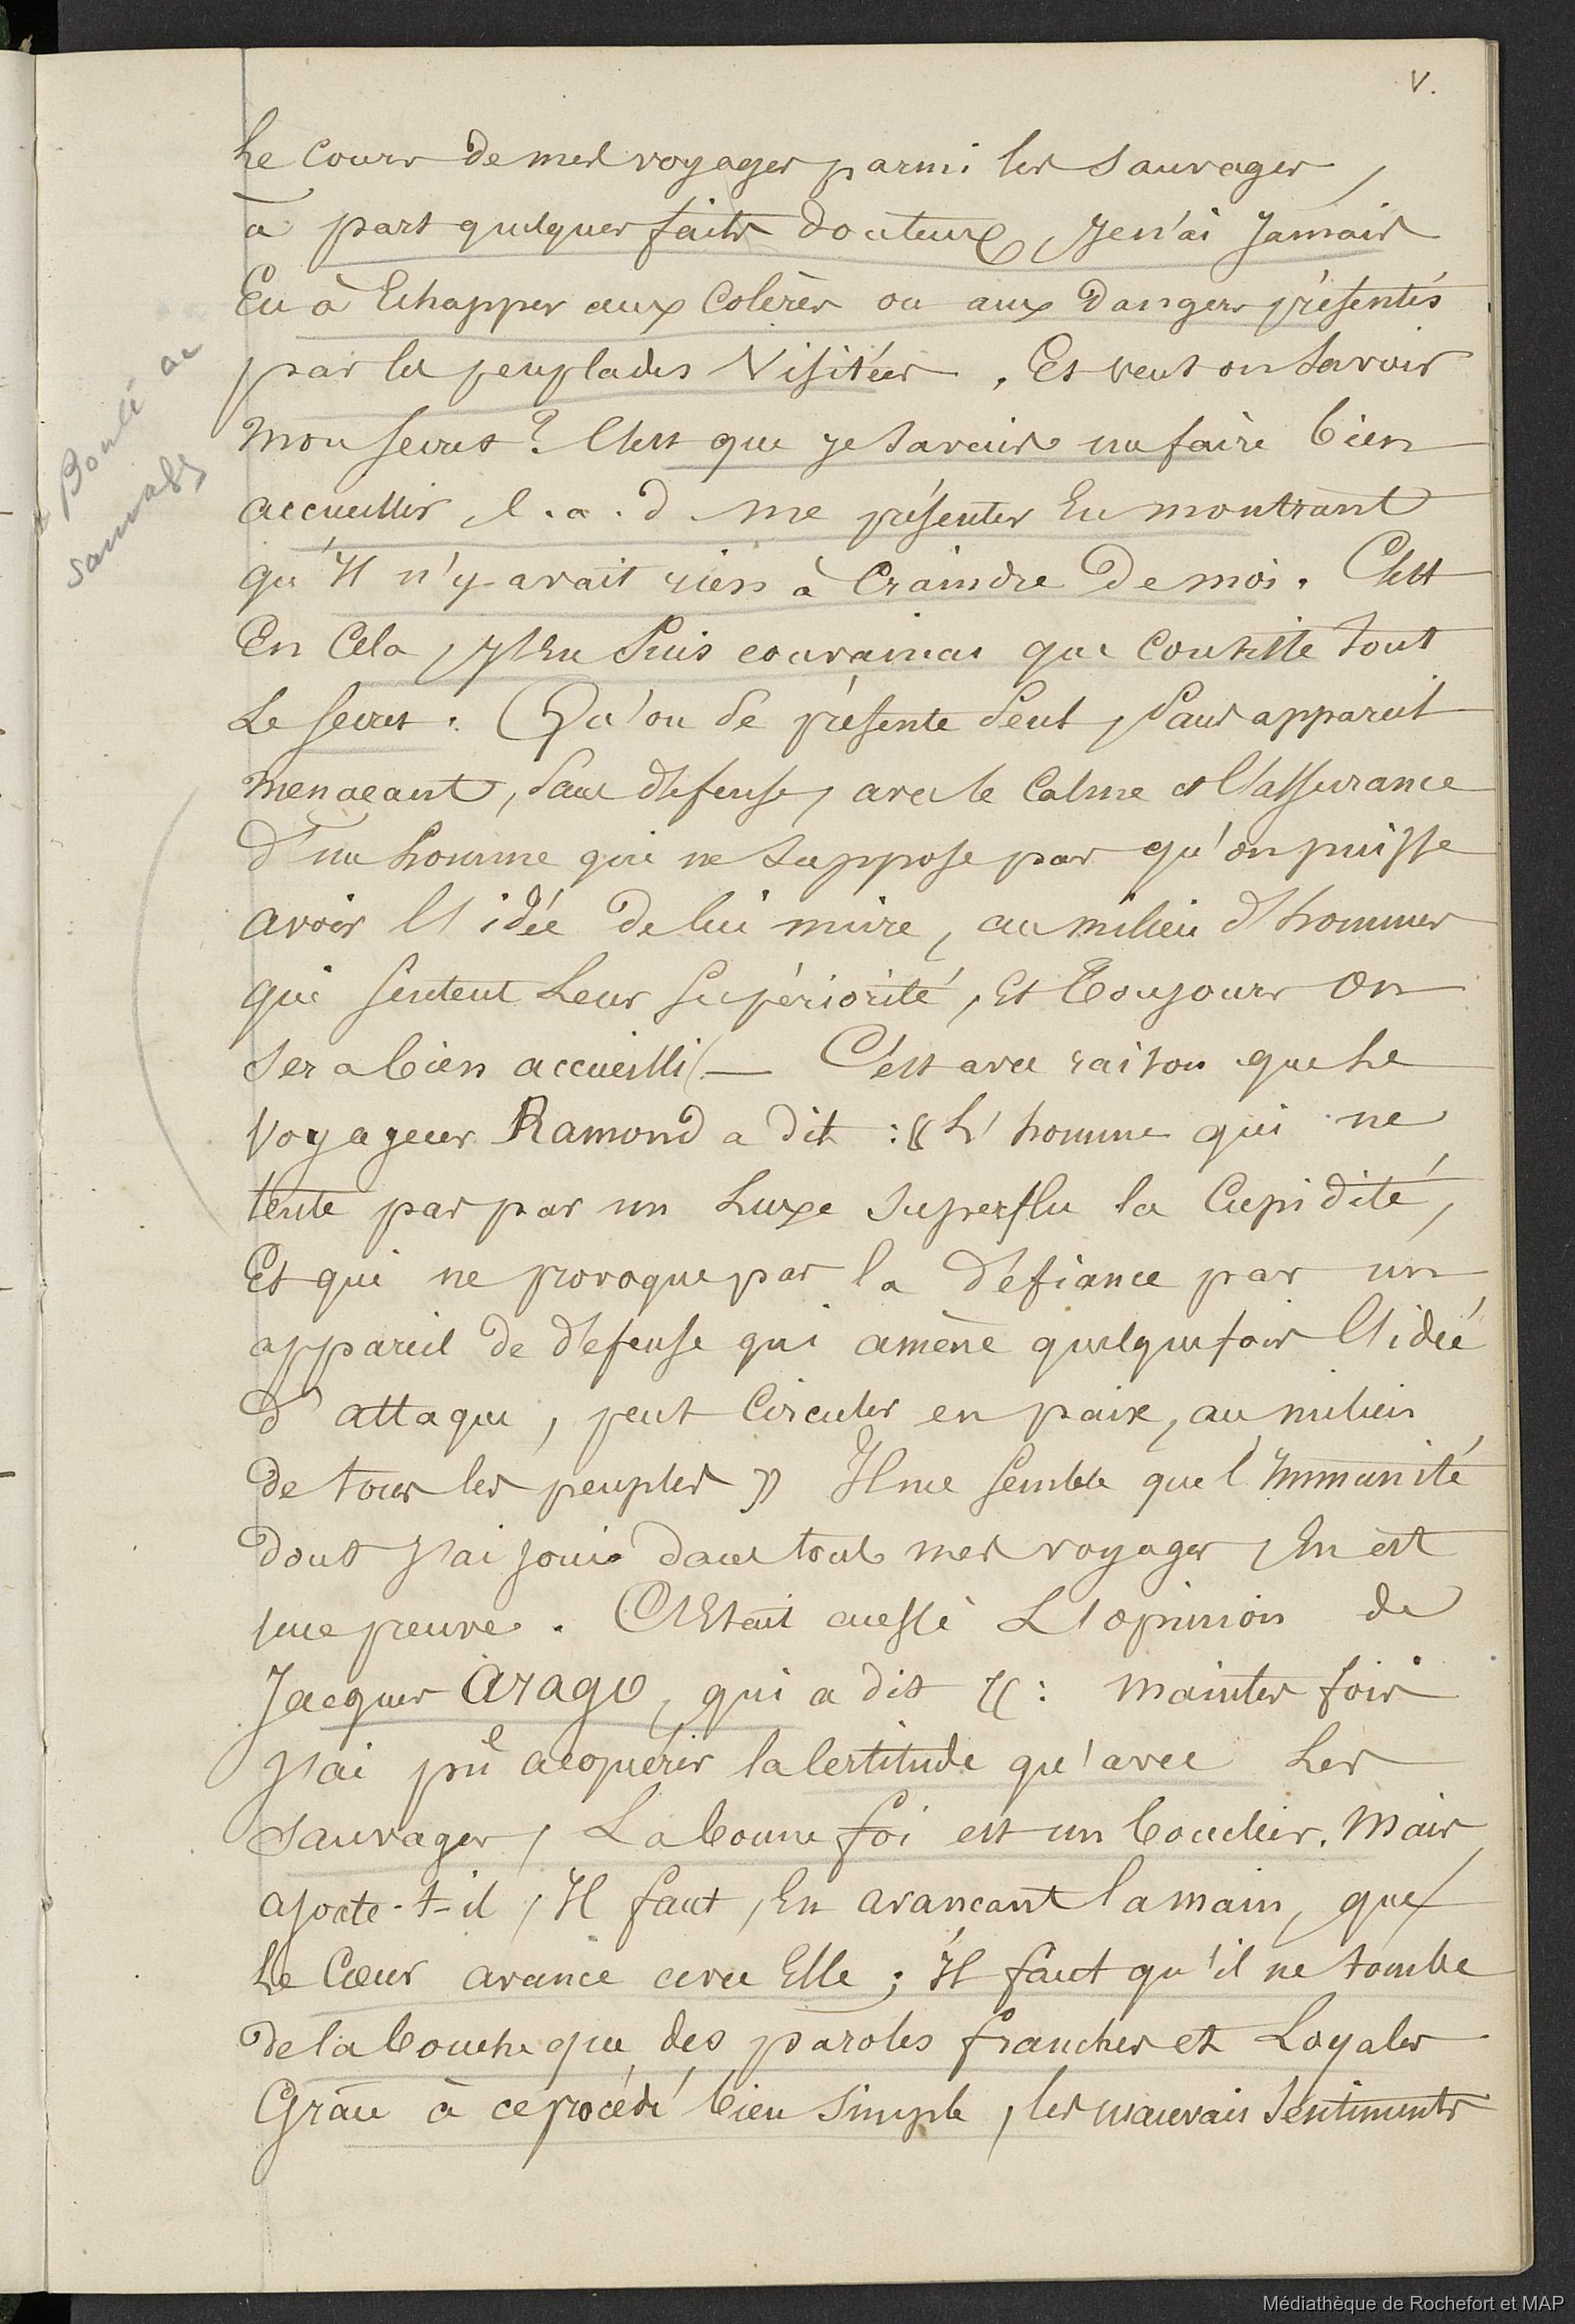 V.
Le Cours de mes voyages parmi les Sauvages,
à part quelques faits douteux, Je n'ai Jamais
Eu à Echapper aux Colères ou aux Dangers présentés
par les peuplades Visitées. Et veut on Savoir
mon Secret? C'est que je savais me faire bien
accueillir, c.a.d. me présenter En montrant
qu'Il n'y avait rien à Craindre De moi. C'est
En Cela, j'En Suis convaincu que Consiste tout
Le Secret. Qu'on Se présente Seul, Sans appareil
menaçant, Sans défense, avec le Calme et l'assurance
d'un homme qui ne Suppose pas qu'on puisse
avoir l'idée De lui nuire, au milieu d'hommes
qui Sentent Leur Supériorité, Et Toujours On
Sera bien accueilli — C'est avec raison que Le
Voyageur Ramond a dit : « L'homme qui ne
tente pas par un Luxe Superflu la Cupidité,
Et qui ne provoque pas la défiance par un
appareil de défense qui amène quelquefois l'idée
d'attaque, peut Circuler en paix, au milieu
de tous les peuples » Il me Semble que l'Immunité
dont J'ai joui dans tous mes voyages, En est
une preuve. C'Etait aussi L'opinion de
Jacques Arago, qui a dit « : maintes fois
J'ai pu acquérir la Certitude qu'avec Les
Sauvages, La bonne foi est un bouclier. Mais
ajoute-t-il, Il faut, En avancant la main, que
Le Cœur avance avec Elle ; Il faut qu'il ne tombe
de la bouche que des paroles franches et Loyales
Grâce à ce procédé bien Simple, les mauvais Sentiments
Bonté de
Sauvages
Médiathèque de Rochefort et MAP